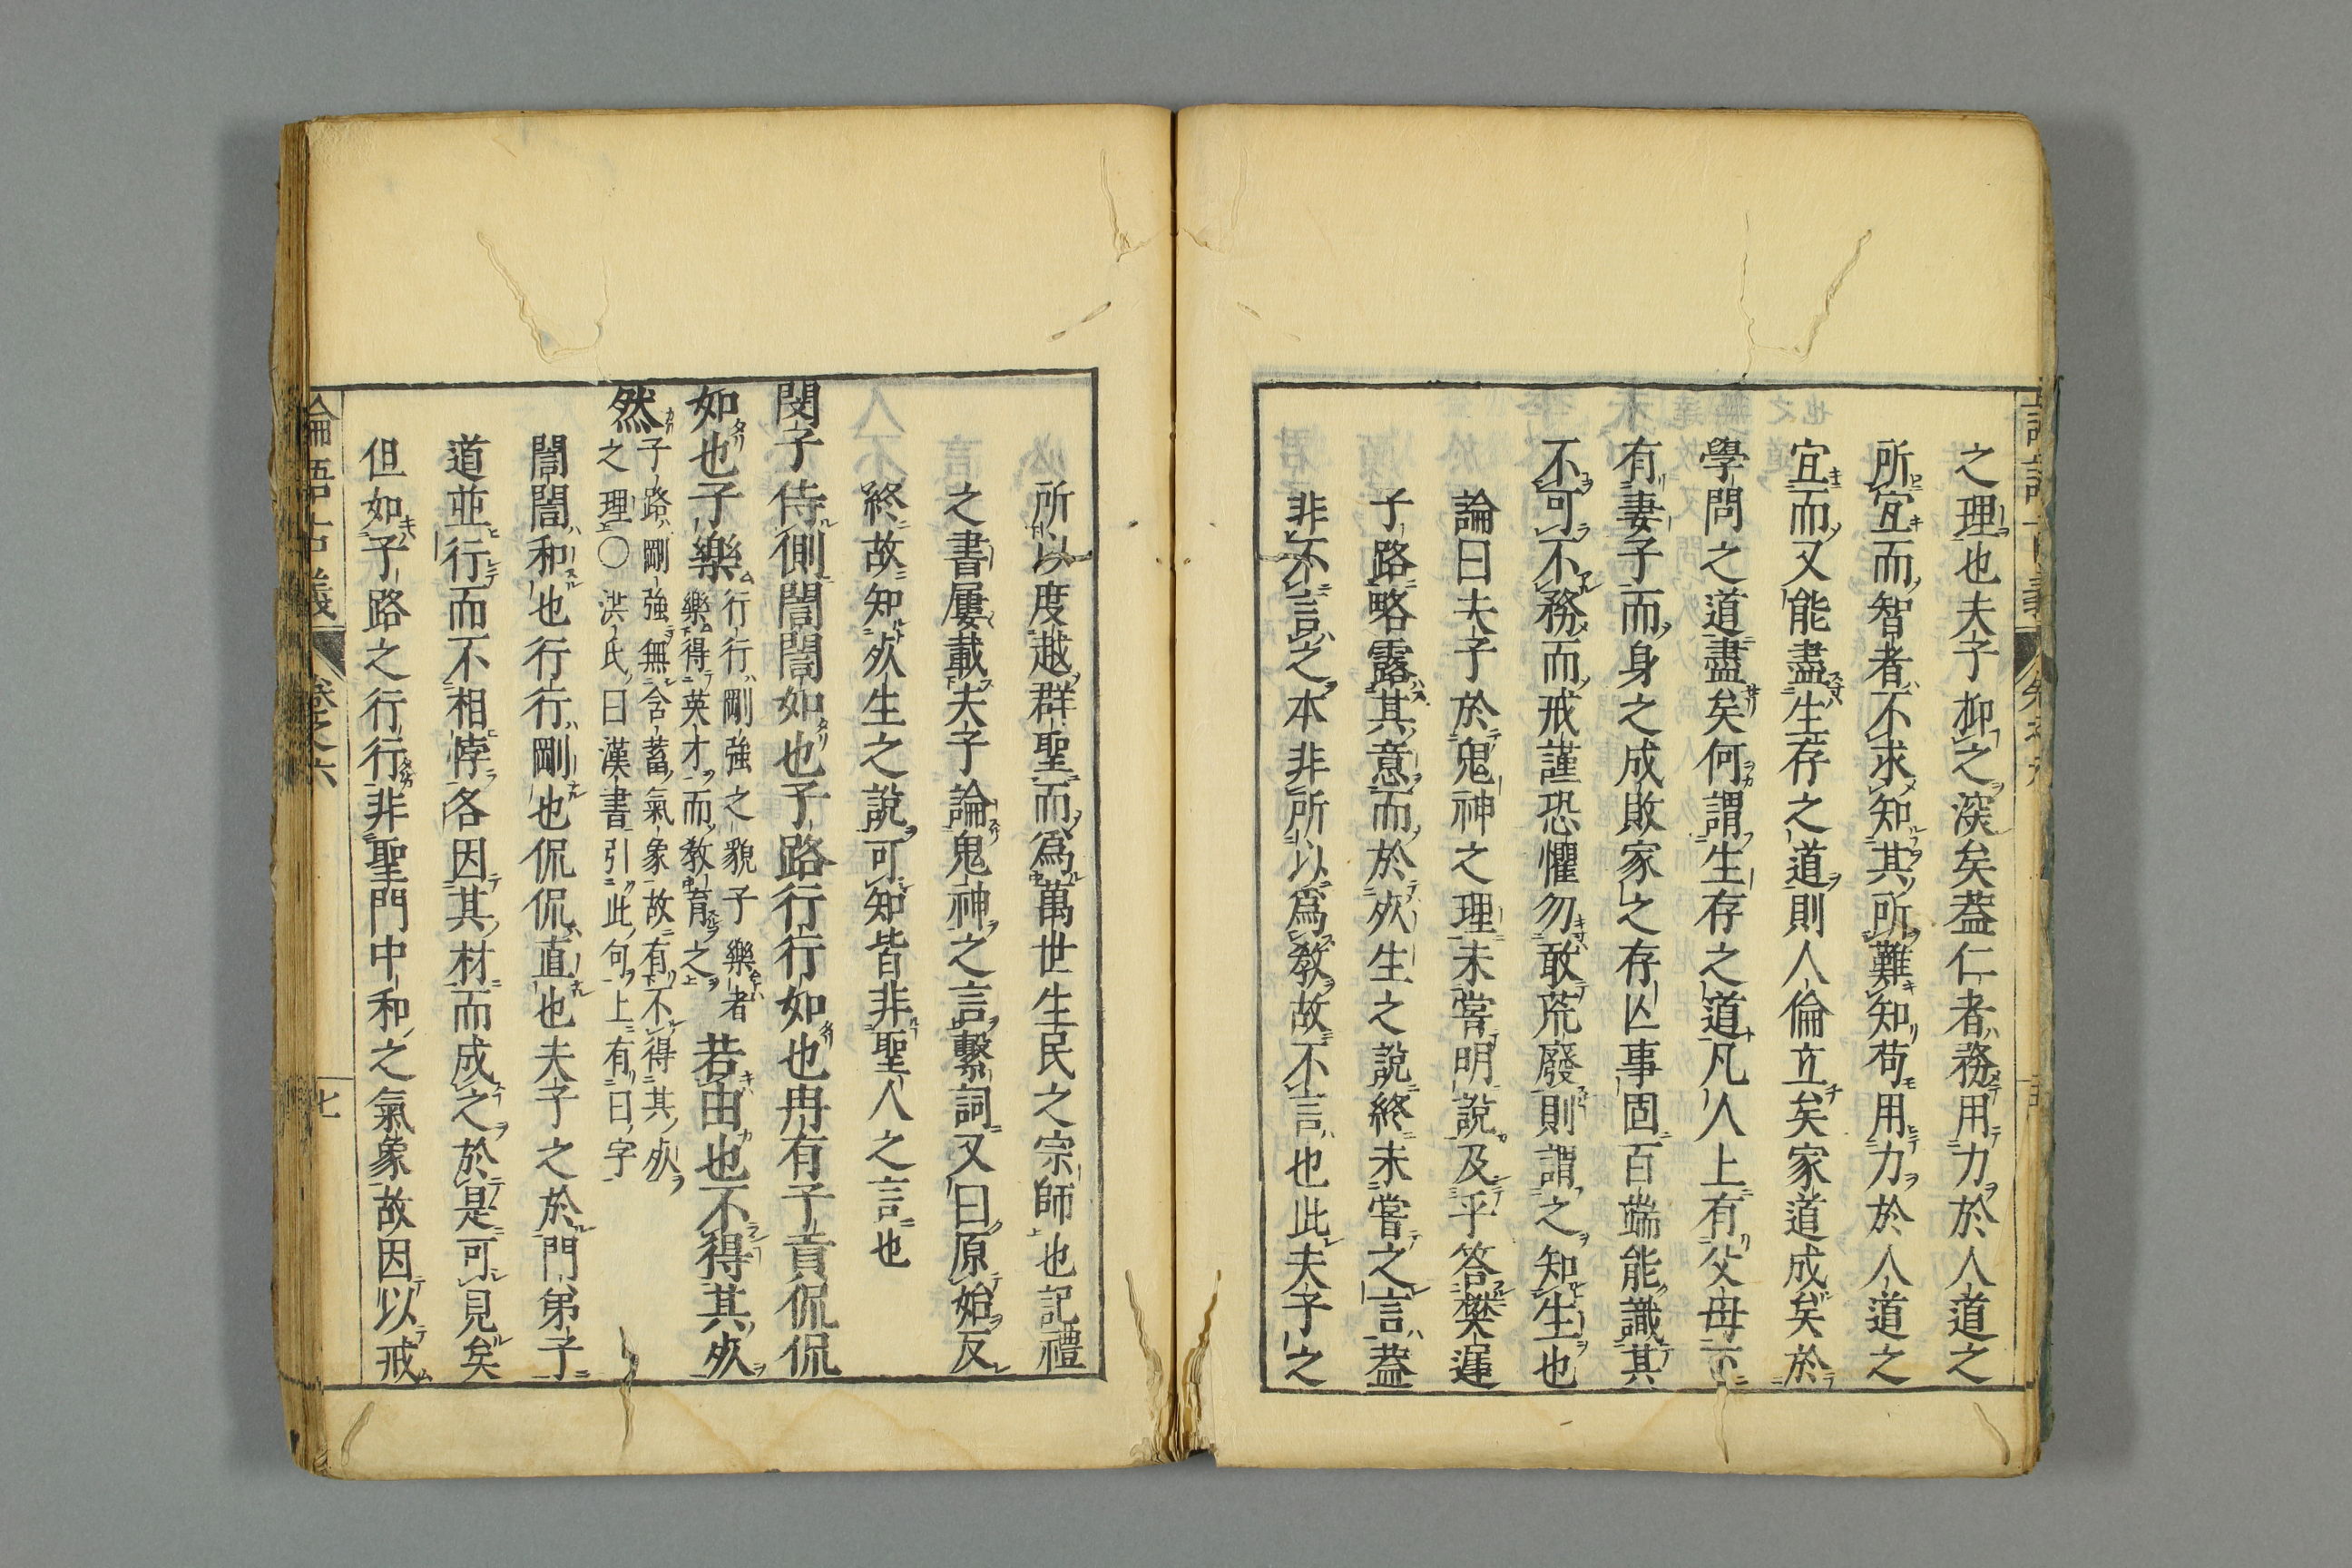 之理也夫子抑之深矣葢仁者務用力於人道之
所宜而智者不求知其所難知苟用力於人道之
宜而又能盡生存之道則人倫立矣家道成矣於
學問之道盡矣何謂生存之道凡人上有父母下
有妻子而身之成敗家之存亾事固百端能識其
不可不務而戒謹恐懼勿敢荒廢則謂之知生也
論曰夫子於鬼神之理未嘗明說及乎答樊遲
子路略露其意而於歾生之說終未嘗之言葢
非不言之本非所以爲敎故不言也此夫子之
所以度越群聖而爲萬世生民之宗師也記禮
之書屢載夫子論鬼神之言繫詞又曰原始反
終故知歾生之說可知皆非聖人之言也
閔子侍側誾誾如也子路行行如也冉有子貢侃侃
如也子樂
行行剛強之貌子樂者
樂得英才而敎育之
若由也不得其歾
然
子路剛強無含蓄氣象故有不得其歾
之理○洪氏曰漢書引此句上有曰字
誾誾和也行行剛也侃侃直也夫子之於門弟子
道並行而不相悖各因其材而成之於是可見矣
但如子路之行行非聖門中和之氣象故因以戒
論語古義
卷之六
七